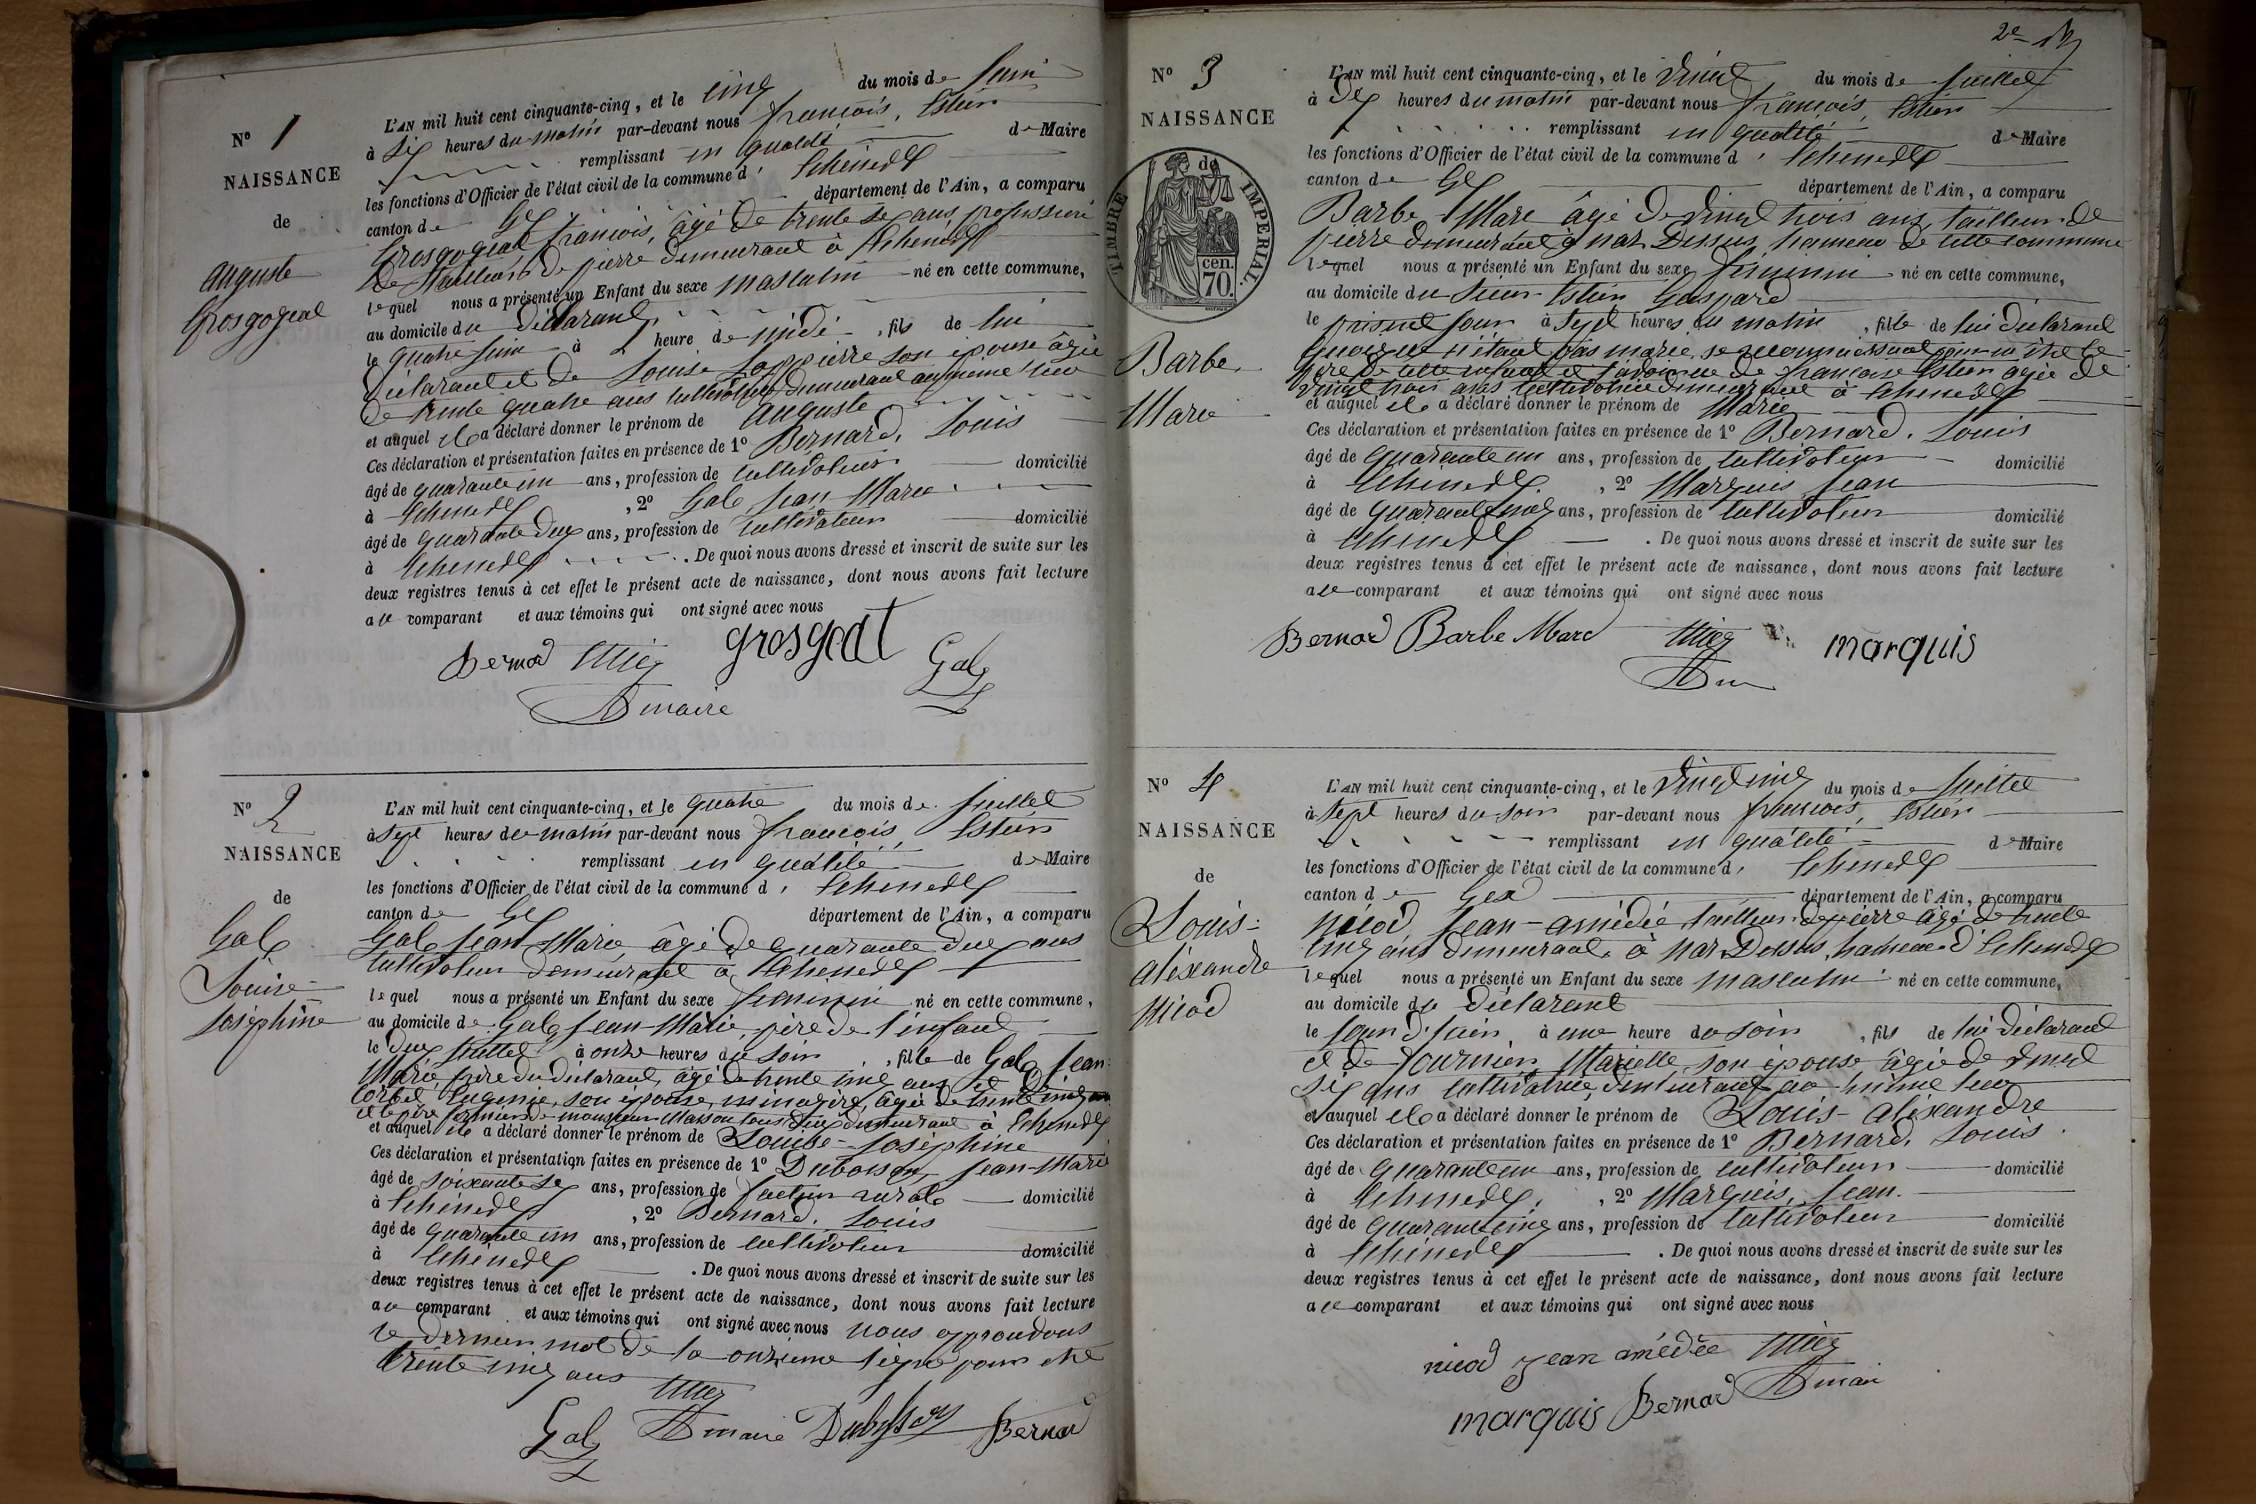 N° 1
NAISSANCE
de
auguste
Grosgogeat
L'AN mil huit cent cinquante-cinq, et le cinq du mois de Juin
à six heures du matin par-devant nous françois, Estier
remplissant en qualité de Maire
les fonctions d'Officier de l'état civil de la commune d' Echenevex
canton de Gex département de l'Ain, a comparu
Grosgogeat françois, âgé de trente six ans, profession
de Tailleur de pierre demeurant à Echenevex
lequel nous a présenté un Enfant du sexe masculin né en cette commune,
au domicile du déclarant
le quatre Juin à heure de midi, fils de lui
déclarant et de Louise son épouse âgée
de trente quatre ans cultivatrice demeurant au même lieu
et auquel il a déclaré donner le prénom de auguste
Ces déclaration et présentation faites en présence de 1° Bernard, Louis
âgé de quarante un ans, profession de cultivateur domicilié
à Echenevex, 2° Gal Jean Marie
âgé de quarante deux ans, profession de cultivateur domicilié
à Echenevex. De quoi nous avons dressé et inscrit de suite sur les
deux registres tenus à cet effet le présent acte de naissance, dont nous avons fait lecture
au comparant et aux témoins qui ont signé avec nous
Bernard grosgeat Gal
maire
N° 2
NAISSANCE
de
Gal
Louise-
Joséphine
L'AN mil huit cent cinquante-cinq, et le quatre du mois de Juillet
à sept heures du matin par-devant nous françois, Estier
remplissant en qualité de Maire
les fonctions d'Officier de l'état civil de la commune d' Echenevex
canton de Gex département de l'Ain, a comparu
Gal Jean-Marie, âgé de quarante deux ans
cultivateur demeurant à Echenevex
lequel nous a présenté un Enfant du sexe féminin né en cette commune,
au domicile de Gal Jean-Marie, père de l'enfant
le deux Juillet à onze heures du soir, fille de Gal Jean-
Marie, frère du déclarant, âgé de trente cinq ans et de
Eugénie, son épouse, ménagère, âgée de trente cinq ans
et le père fermier de monsieur tous deux demeurant à Echenevex
et auquel il a déclaré donner le prénom de Louise-Joséphine
Ces déclaration et présentation faites en présence de 1° Duboisson, Jean-Marie
âgé de soixante six ans, profession de facteur rural domicilié
à Echenevex, 2° Bernard, Louis
âgé de quarante un ans, profession de cultivateur domicilié
à Echenevex. De quoi nous avons dressé et inscrit de suite sur les
deux registres tenus à cet effet le présent acte de naissance, dont nous avons fait lecture
au comparant et aux témoins qui ont signé avec nous nous approuvons
le dernier mot de la onzième ligne pour être
trente cinq ans
Gal maire Bernard
2e
N° 3
NAISSANCE
de
TIMBRE IMPERIAL.
cen.
70.
Barbe,
Marie
L'AN mil huit cent cinquante-cinq, et le vingt du mois de Juillet
à dix heures du matin par-devant nous françois, Estier
remplissant en qualité de Maire
les fonctions d'Officier de l'état civil de la commune d' Echenevex
canton de Gex département de l'Ain, a comparu
Barbe Marc âgé de vingt trois ans, tailleur de
pierre demeurant à naz Dessus, hameau de cette commune
lequel nous a présenté un Enfant du sexe féminin né en cette commune,
au domicile du sieur Estier Gaspard
le présent jour à sept heures du matin, fille de lui déclarant
quoique n'étant pas marié, se reconnaissant pour être le
père de cette enfant et de françoise Estier âgée de
vingt trois ans cultivatrice demeurant à Echenevex
et auquel il a déclaré donner le prénom de Marie
Ces déclaration et présentation faites en présence de 1° Bernard, Louis
âgé de quarante un ans, profession de cultivateur domicilié
à Echenevex, 2° Marquis, Jean
âgé de quarante cinq ans, profession de cultivateur domicilié
à Echenevex. De quoi nous avons dressé et inscrit de suite sur les
deux registres tenus à cet effet le présent acte de naissance, dont nous avons fait lecture
au comparant et aux témoins qui ont signé avec nous
Bernard Barbe Marc marquis
N° 4
NAISSANCE
de
Louis-
aléxandre
Nicod
L'AN mil huit cent cinquante-cinq, et le vingt cinq du mois de Juillet
à sept heures du soir par-devant nous françois, Estier
remplissant en qualité de Maire
les fonctions d'Officier de l'état civil de la commune d' Echenevex
canton de Gex département de l'Ain, a comparu
nicod Jean-amédée tailleur de pierre âgé de trente
cinq ans demeurant, à Naz Dessus, hameau d'Echenevex
lequel nous a présenté un Enfant du sexe masculin né en cette commune,
au domicile du déclarant
le jour d'hier, à une heure du soir, fils de lui déclarant
et de fournier, son épouse âgée de vingt
six ans cultivatrice, demeurant au même lieu
et auquel il a déclaré donner le prénom de Louis-aléxandre
Ces déclaration et présentation faites en présence de 1° Bernard, Louis
âgé de quarante un ans, profession de cultivateur domicilié
à Echenevex, 2° Marquis, Jean
âgé de quarante cinq ans, profession de cultivateur domicilié
à Echenevex. De quoi nous avons dressé et inscrit de suite sur les
deux registres tenus à cet effet le présent acte de naissance, dont nous avons fait lecture
au comparant et aux témoins qui ont signé avec nous
nicod jean amédée
marquis Bernard maire